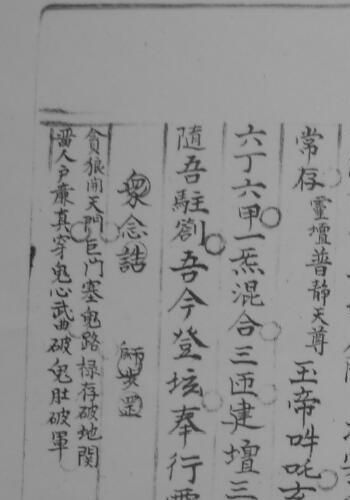 常存靈壇普静天尊玉帝吽吒
六丁六甲一炁混合三匝建壇三
隨吾駐劄吾今登坛奉行
眾念誥 師步罡
貪狼開天門巨門塞鬼路祿存破地関
畱人户廉真穿鬼心武曲破鬼肚破軍